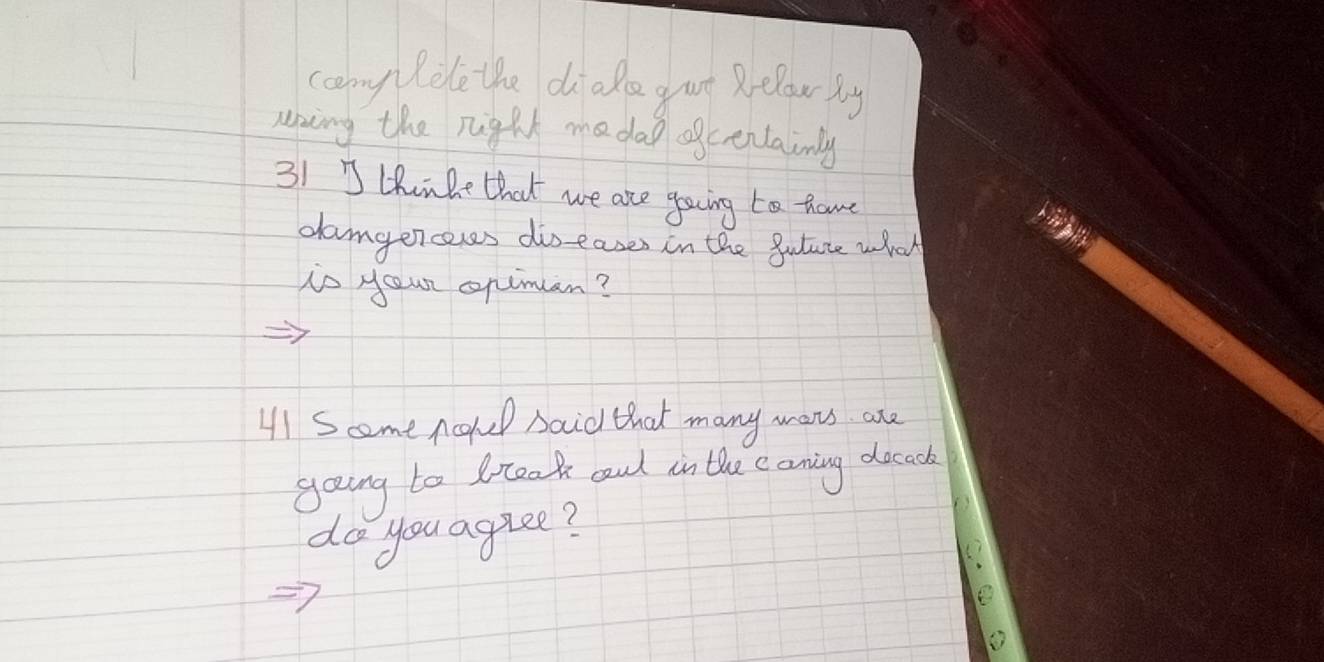 complete the dialogue below by
using the right modal of certainly
3) I thinke that we are going to have
dangerous diseases in the future what
is your opinion?
⇒
4) Some popel said that many wars are
going to break out in the coming decade
do you agree?
⇒